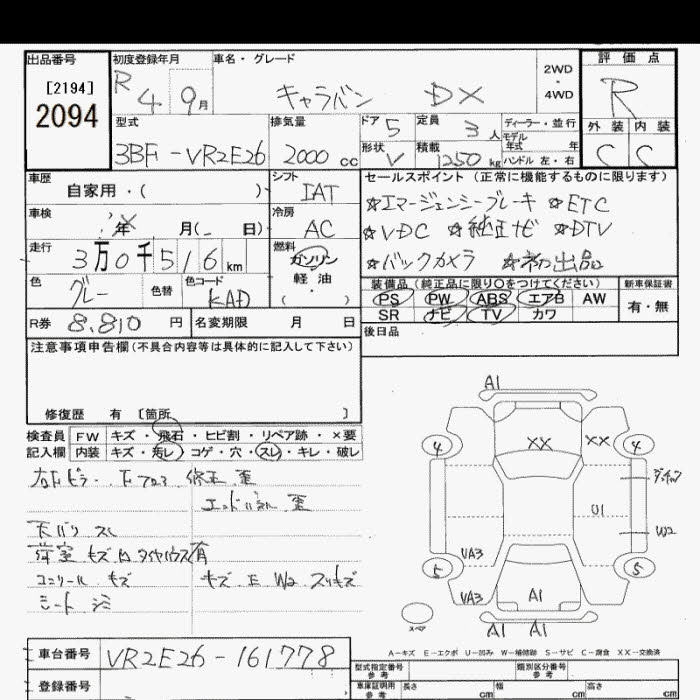 出品番号 初度登録年月 車名・グレード 評価点
[2194]
2094
R 4 9月
キャラバン DX
2WD・4WD
R
型式 排気量 ドア 定員 ディーラー・並行 外装 内装
5 3人 モデル年式 年
3BF-VR2E26 2000cc 形状 V 積載 1250kg ハンドル 左・右 C C
車歴 シフト セールスポイント(正常に機能するものに限ります)
自家用・( ) IAT
☆エマージェンシーブレーキ ☆ETC
車検 冷房
年 月( 日) AC
☆VDC ☆純正ナビ ☆DTV
走行 燃料
3万0千516km ガソリン
軽油
・( )
☆バックカメラ ☆初出品
色 色替 色コード
グレー KAD
装備品(純正品に限り○をつけてください) 新車保証書
PS PW ABS エアB AW 有・無
SR ナビ TV カワ
R券 8,810円 名変期限 月 日 後日品
注意事項申告欄(不具合内容等は具体的に記入して下さい)
修復歴 有 [箇所 ]
検査員 FW キズ・飛石・ヒビ割・リペア跡・×要
記入欄 内装 キズ・汚レ・コゲ・穴・スレ・キレ・破レ
修正 歪
歪
天バリ スレ
キズ
キズ E W2 スリキズ
シート シミ
A1
XX XX
4 4
U1
W2
UA3
5 5
UA3 A1
スペア
A1 A1
A-キズ E-エクボ U-凹み W-補修跡 S-サビ C-腐食 XX-交換済
車台番号 VR2E26-161778
型式指定番号 参考 類別区分番号 参考
登録番号
車庫証明用 参考 長さ cm 幅 cm 高さ cm